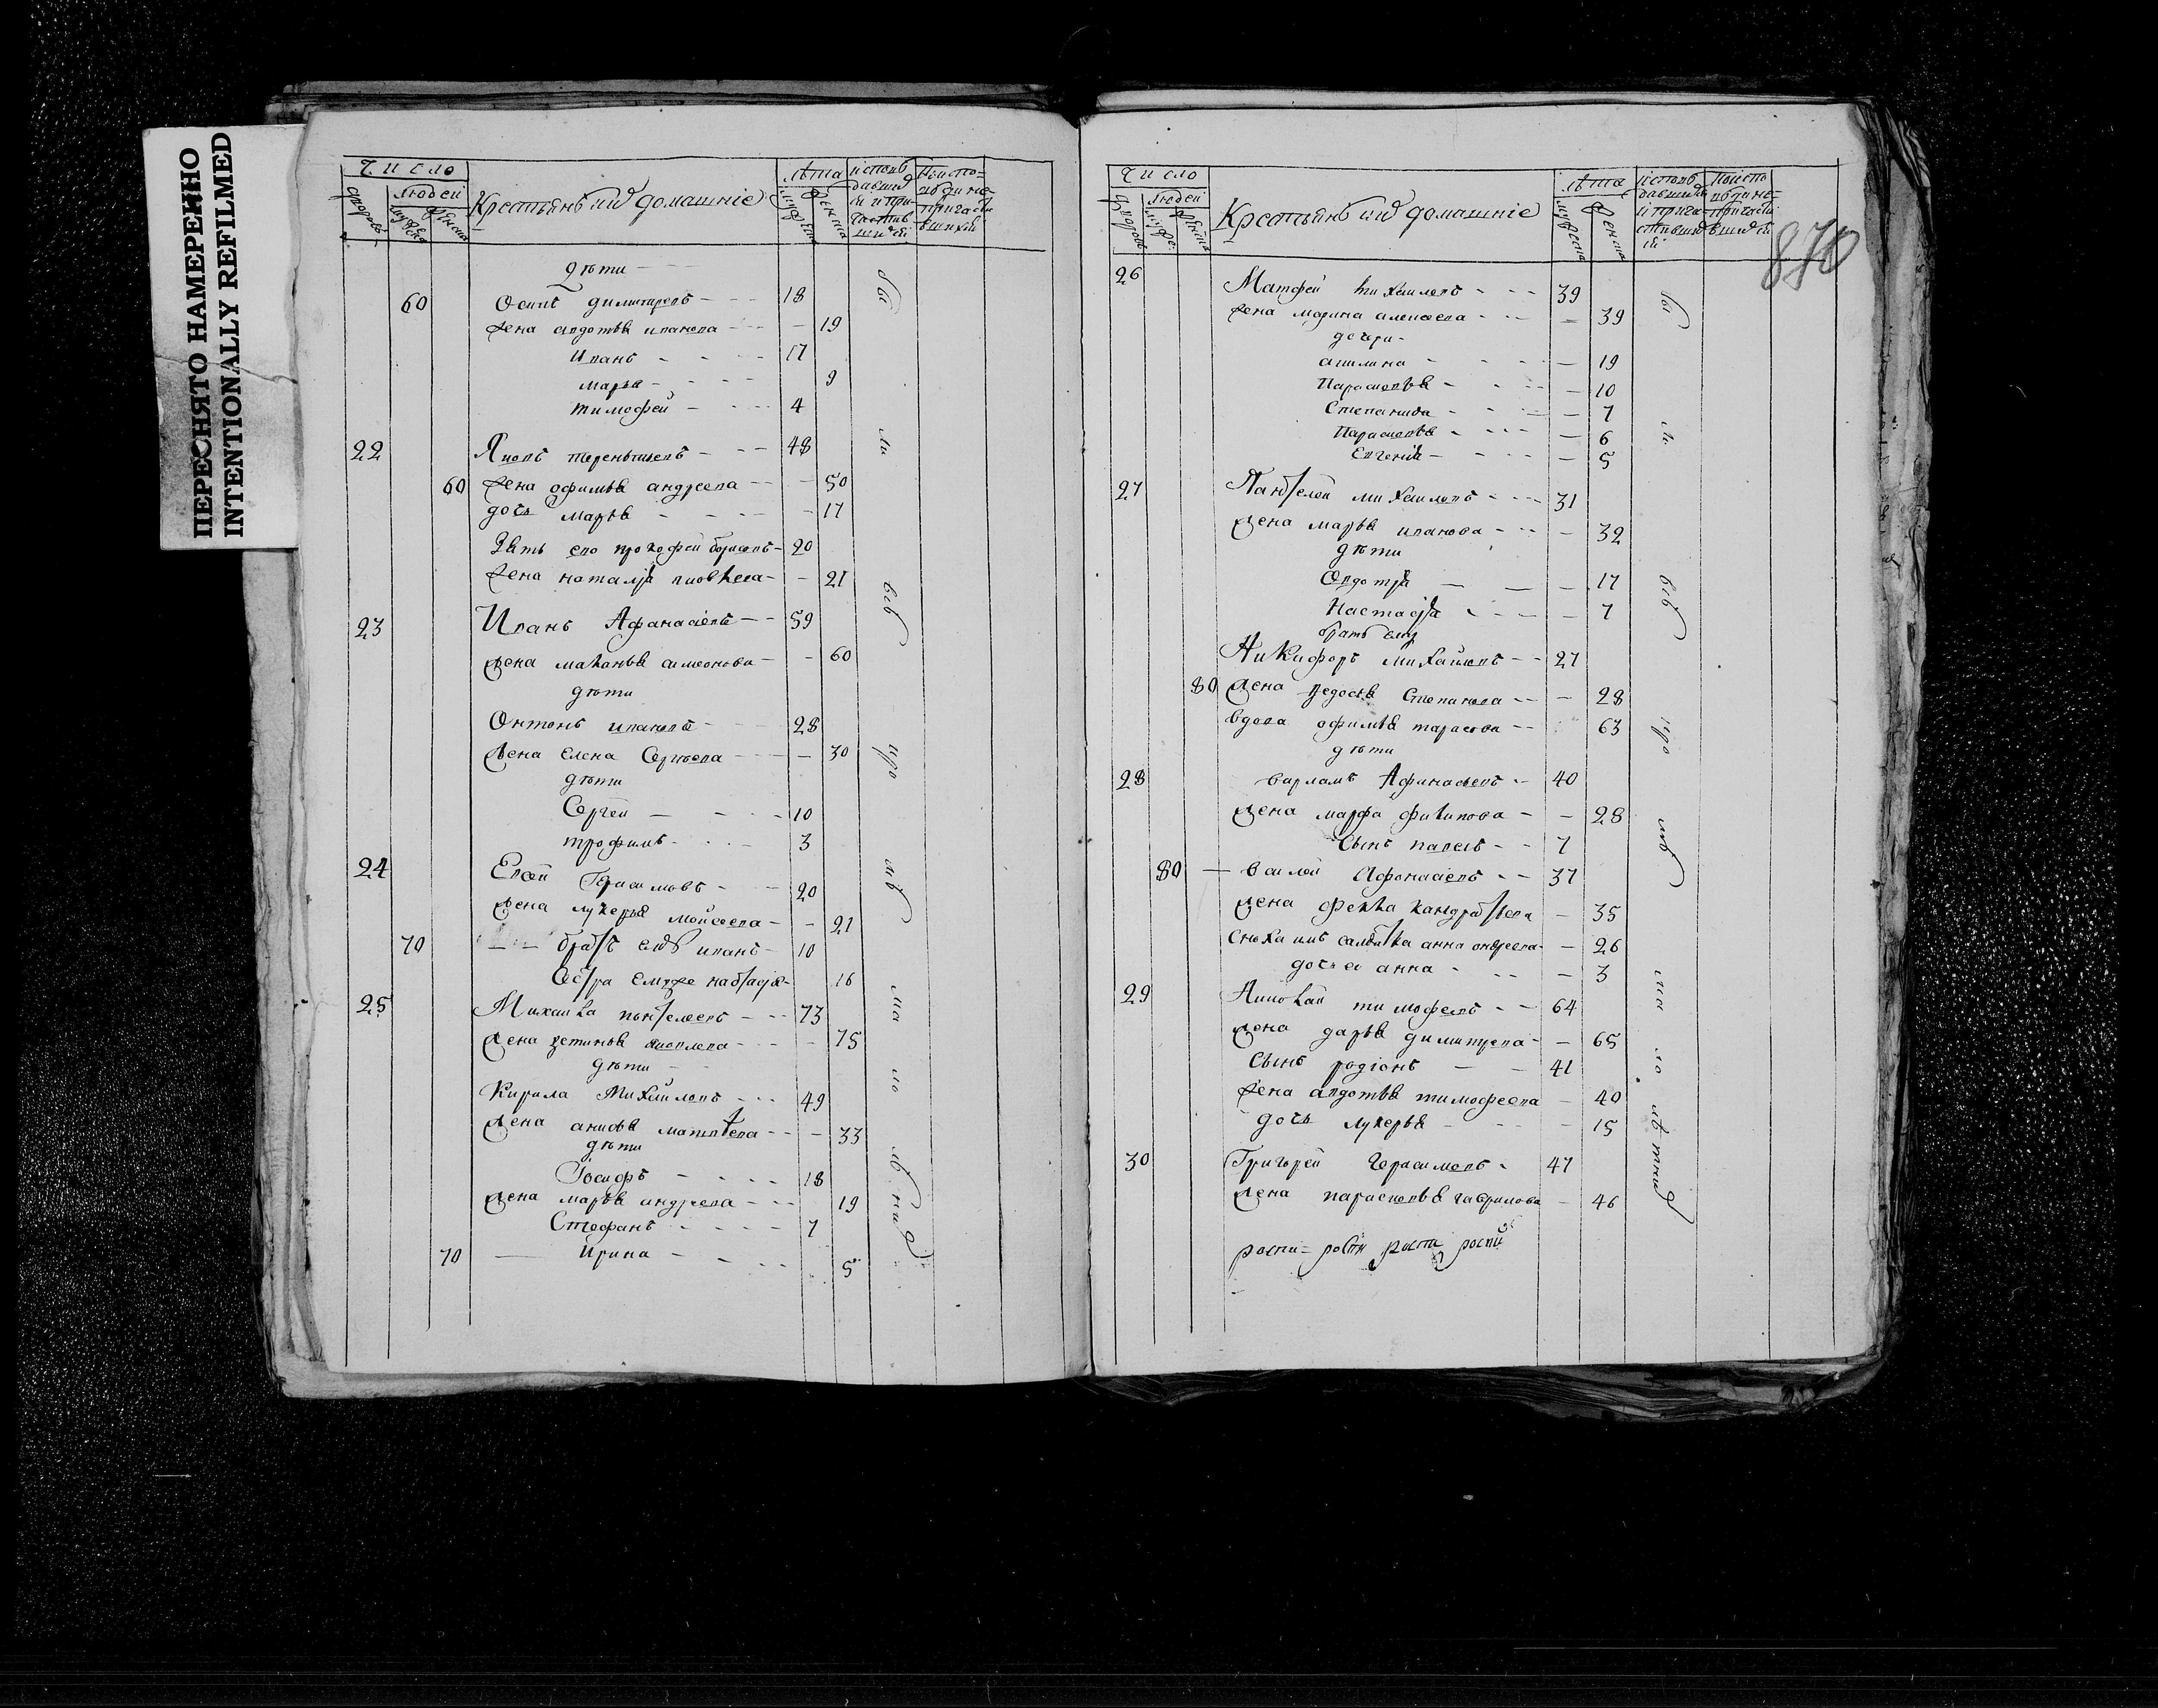 ПЕРЕСНЯТО НАМЕРЕННО
INTENTIONALLY REFILMED
Число
людей
Крестьянь ихъ домашніе
лѣта
дѣти
60 Осипъ димитреевъ 18
жена авдотья иванова 19
Иванъ 17
марья 9
тимофей 4
22 Яковъ терентьевъ 48
60 жена офимья андреева 50
дочь марья 17
Зять ево прокофей борисовъ 20
жена наталья 21
23 Иванъ Афанасіевъ 59
жена маланья симеонова 60
дѣти
Онтонъ ивановъ 28
жена елена Сергѣева 30
дѣти
Сергей 10
трофимъ 3
24 Герасимовъ 20
жена лукерья мойсеева 21
70 братъ ево иванъ 10
Сестра ему же настасья 16
25 Михаила пантелеевъ 73
жена устинья яковлева 75
дѣти
Кирила Михайловъ 49
жена анисья матвеева 33
дѣти
Іосифъ 18
жена марья андреева 19
Стефанъ 7
70 Ирина 5
Число
людей
Крестьянь ихъ домашніе
лѣта
870
26 Матфей михайловъ 39
жена марина алексеева 39
дочери
акилина 19
Парасковья 10
Степанида 7
Парасковья 6
Евгенія 5
27 Пантелей михайловъ 31
жена марья иванова 32
дѣти
Овдотья 17
Настасья 7
братъ ему
Никифоръ михайловъ 27
80 жена федосья Степанова 28
вдова офимья тарасова 63
дѣти
28 варламъ Афанасьевъ 40
жена марфа филипова 28
Сынъ павелъ 7
80 василей Афонасіевъ 37
жена фекла кандратьева 35
Сноха имъ салдатка анна андреева 26
дочь ея анна 3
29 тимофеевъ 64
жена дарья димитрева 65
Сынъ родіонъ 41
жена авдотья тимофеева 40
дочь лукерья 15
30 Григорей Герасимовъ 47
жена парасковья гаврилова 46
роспи роспи роспи роспи